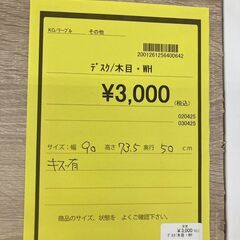 KG/テーブル その他
2001261256400642
デスク/木目・WH
¥3,000
(税込)
020425
030425
サイズ:幅 90 高さ 73.5 奥行 50 cm
キズ有
商品のサイズ、状態を よくご確認下さい。
¥3,000
デスク/木目・WH